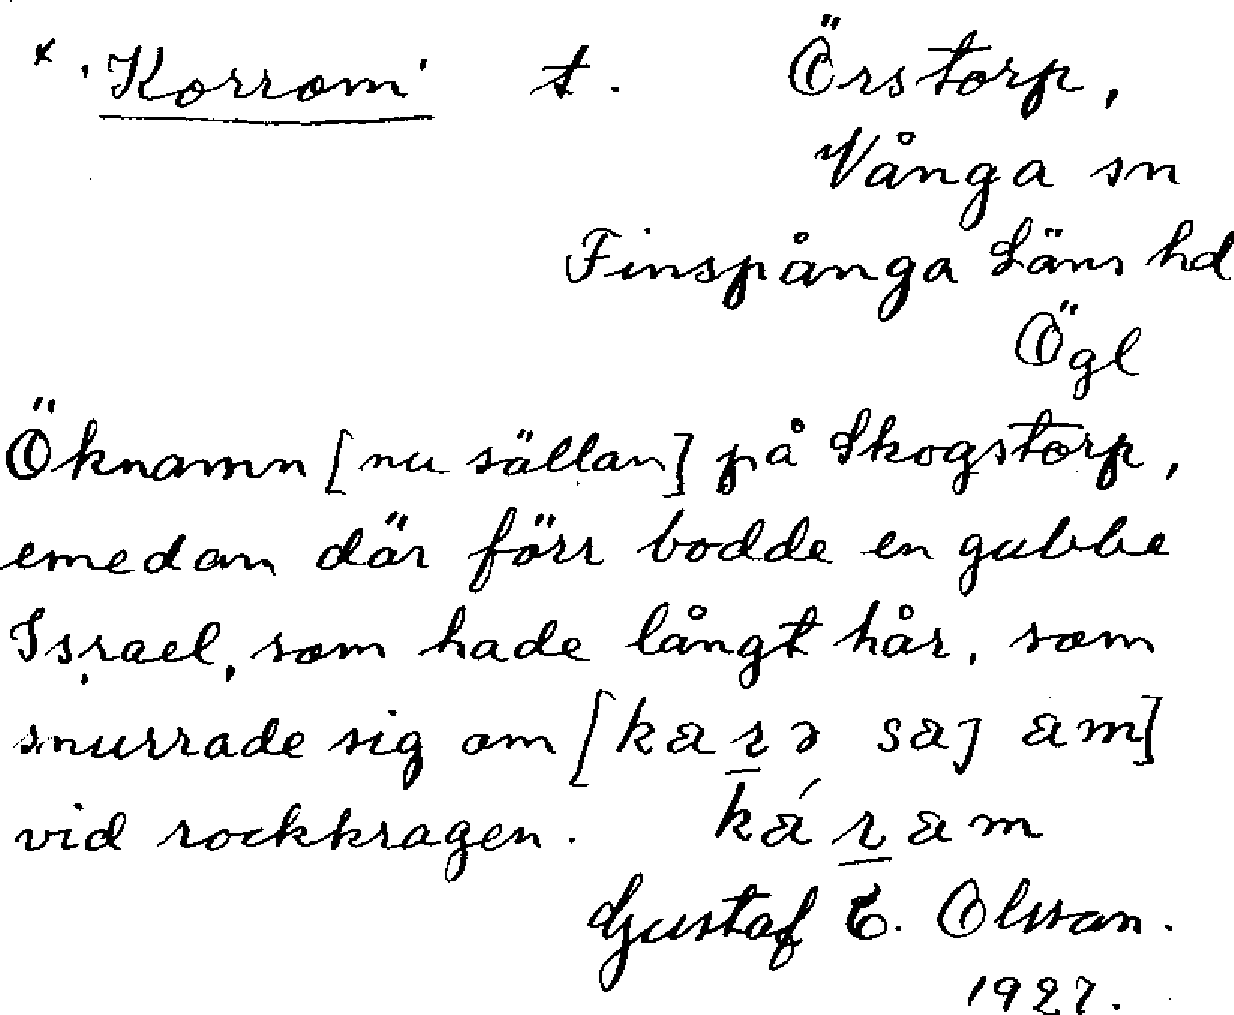 × 'Korrom' t. Örstorp,
Vånga sn
Finspånga Läns hd
Ögl
Öknamn [nu sällan] på Skogstorp,
emedan där förr bodde en gubbe
Israel, som hade långt hår, som
snurrade sig om [karə saj am]
vid rockkragen. káram
Gustaf E. Olsson.
1927.